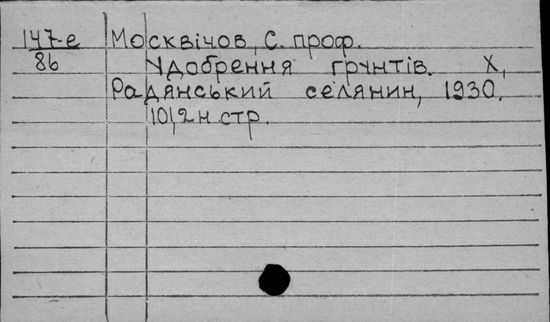 147-е Москвічов, С. проф.
86 Удобрення грунтів. Х,
Радянський селянин, 1930.
101,2 н. стр.